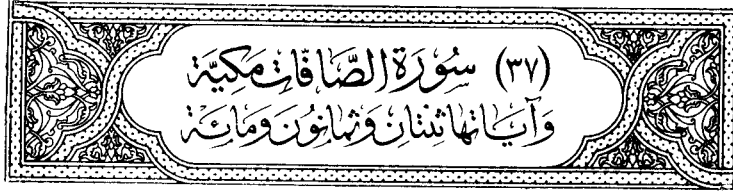 (٣٧) سُورَة الصَّافَّات مَكيَّة
وَآيَاتها ثِنتَان وَثمَانُون وَمَائة